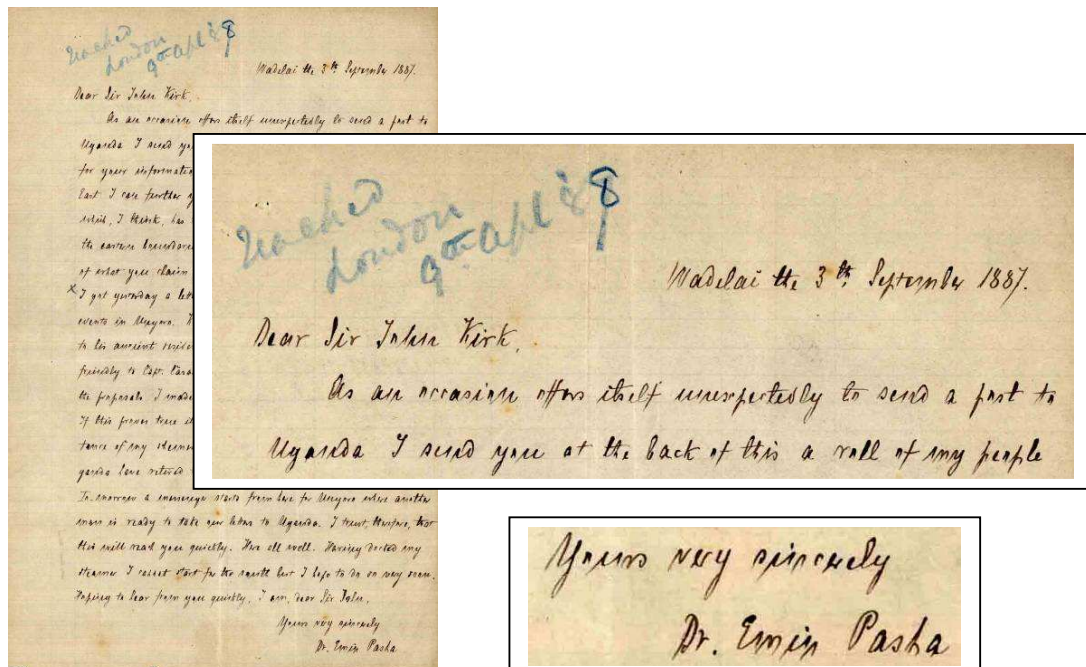 reached
London
9th Apl 88
Wadelai the 3th September 1887.
Dear Sir John Kirk,
As an occasion offers itself unexpectedly to send a post to
Uganda I send you
for your information
East I care further
which, I think, has
the eastern
of what you claim
x I got yesterday a letter
events in Unyoro.
to his ancient
friendly to Capt. Casa
the proposals I made
If this proves true
tance of my steamer
ganda have retired
To-morrow a messenger starts from here for Unyoro where another
man is ready to take our letters to Uganda. I trust, therefore, that
this will reach you quickly. Here all well. Having docked my
steamer I cannot start for the south but I hope to do so very soon.
Hoping to hear from you quickly, I am, dear Sir John,
Yours very sincerely
Dr. Emin Pasha
reached
London
9th Apl 88
Wadelai the 3th September 1887.
Dear Sir John Kirk,
As an occasion offers itself unexpectedly to send a post to
Uganda I send you at the back of this a roll of my people
Yours very sincerely
Dr. Emin Pasha